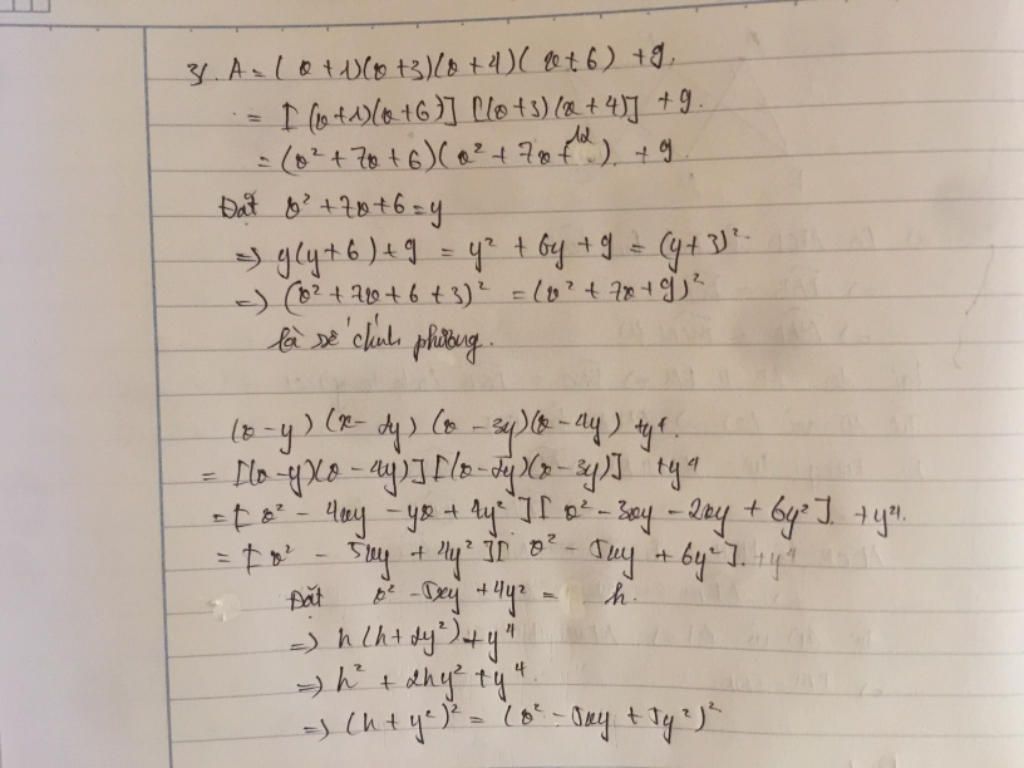 3/. A = (x + 1)(x + 3)(x + 4)(x + 6) + 9.
= [(x + 1)(x + 6)] [(x + 3)(x + 4)] + 9.
= (x² + 7x + 6)(x² + 7x + 12) + 9
Đặt x² + 7x + 6 = y
=> y(y + 6) + 9 = y² + 6y + 9 = (y + 3)²
=> (x² + 7x + 6 + 3)² = (x² + 7x + 9)²
là số chính phương.
(x - y)(x - 2y)(x - 3y)(x - 4y) + y⁴.
= [(x - y)(x - 4y)] [(x - 2y)(x - 3y)] + y⁴
= [x² - 4xy - yx + 4y²][x² - 3xy - 2xy + 6y²]. + y⁴.
= [x² - 5xy + 4y²][x² - 5xy + 6y²]. + y⁴
Đặt x² - 5xy + 4y² = h.
=> h(h + 2y²) + y⁴
=> h² + 2hy² + y⁴.
=> (h + y²)² = (x² - 5xy + 5y²)²